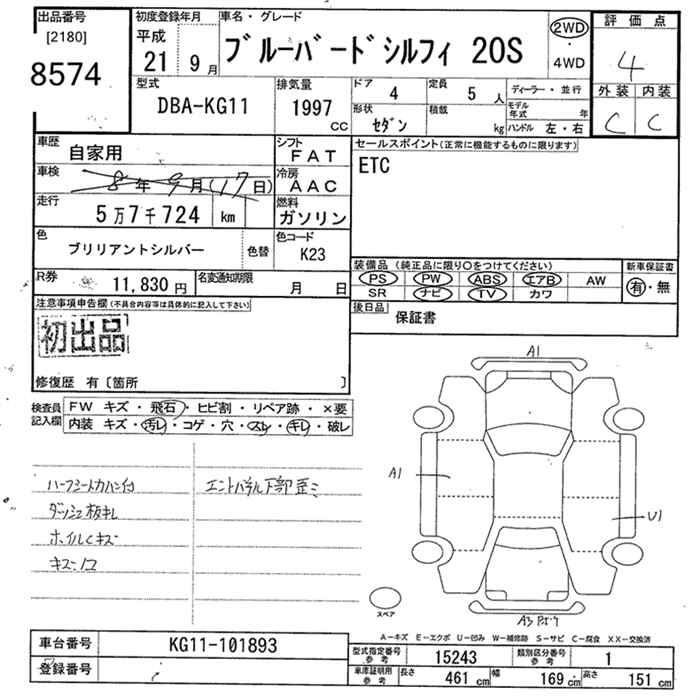 出品番号
[2180]
8574
初度登録年月
平成
21年 9月
車名・グレード
ブルーバードシルフィ 20S
2WD
・
4WD
評価点
4
外装 内装
C C
型式
DBA-KG11
排気量
1997
CC
ドア 4
定員 5人
形状 セダン
積載 kg
ディーラー・並行
モデル年式 年
ハンドル 左・右
車歴 自家用
シフト FAT
車検 8年9月(17日)
冷房 AAC
走行 5万7千724 km
燃料 ガソリン
色 ブリリアントシルバー
色替
色コード K23
R券 11,830円
名変通知期限 月 日
セールスポイント(正常に機能するものに限ります)
ETC
装備品(純正品に限り〇をつけてください)
新車保証書
PS PW ABS エアB AW
有・無
SR ナビ TV カワ
後日品 保証書
注意事項申告欄(不具合内容等は具体的に記入して下さい)
初出品
修復歴 有〔箇所 〕
検査員記入欄
FW キズ・飛石・ヒビ割・リペア跡・×要
内装 キズ・汚レ・コゲ・穴・スレ・キレ・破レ
ハーフシートカバー付
ダッシュ板キレ
ホイルキズ
エンドパネル下部歪ミ
A1
A1
U1
スペア
A-キズ E-エクボ U-凹み W-補修跡 S-サビ C-腐食 XX-交換済
車台番号 KG11-101893
登録番号
型式指定番号 参考 15243
類別区分番号 参考 1
車庫証明用 参考
長さ 461cm
幅 169cm
高さ 151cm